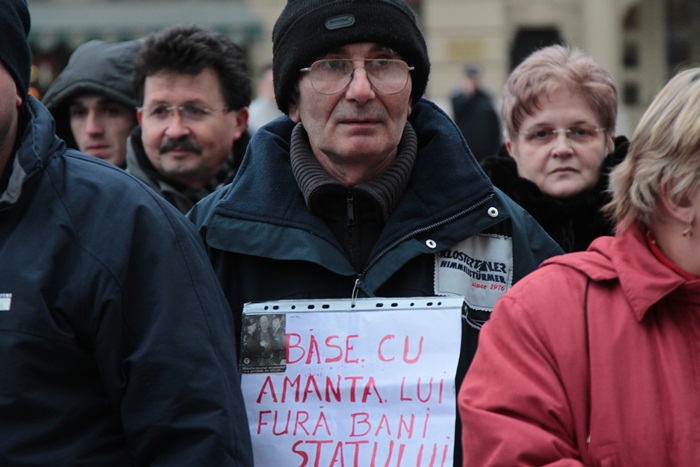 KLOSTERTALER
HIMMELSTÜRMER
since 1976
BĂSE. CU
AMANTA. LUI
FURĂ BANI
STATULUI